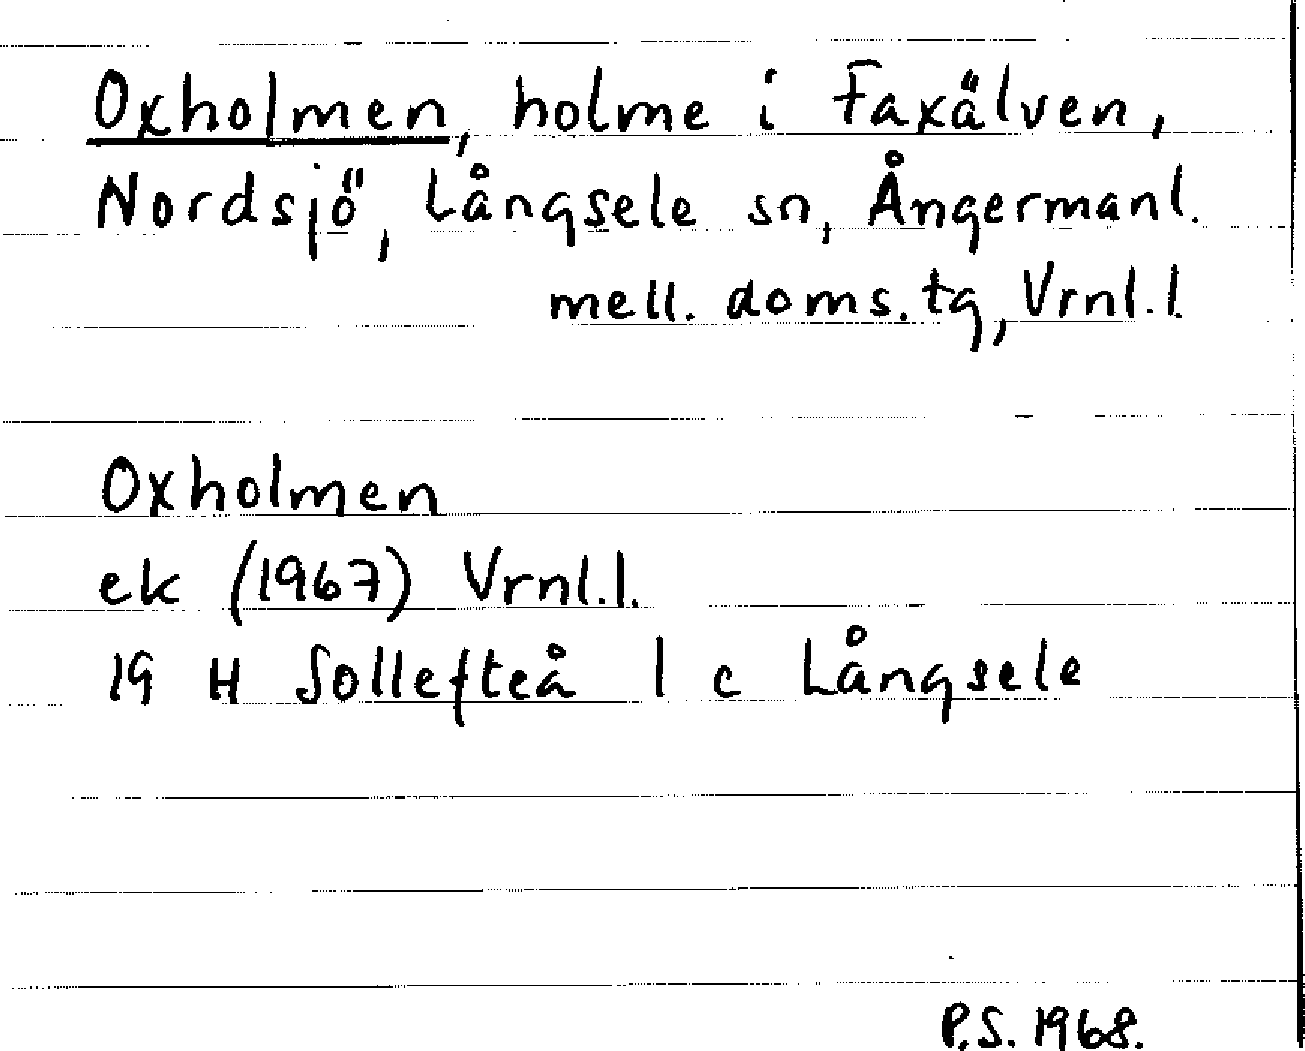 Oxholmen, holme i Faxälven,
Nordsjö, Långsele sn, Ångermanl.
mell. doms.tg, Vrnl.l.
Oxholmen
ek (1967) Vrnl.l.
19 H Sollefteå 1 c Långsele
P.S. 1968.